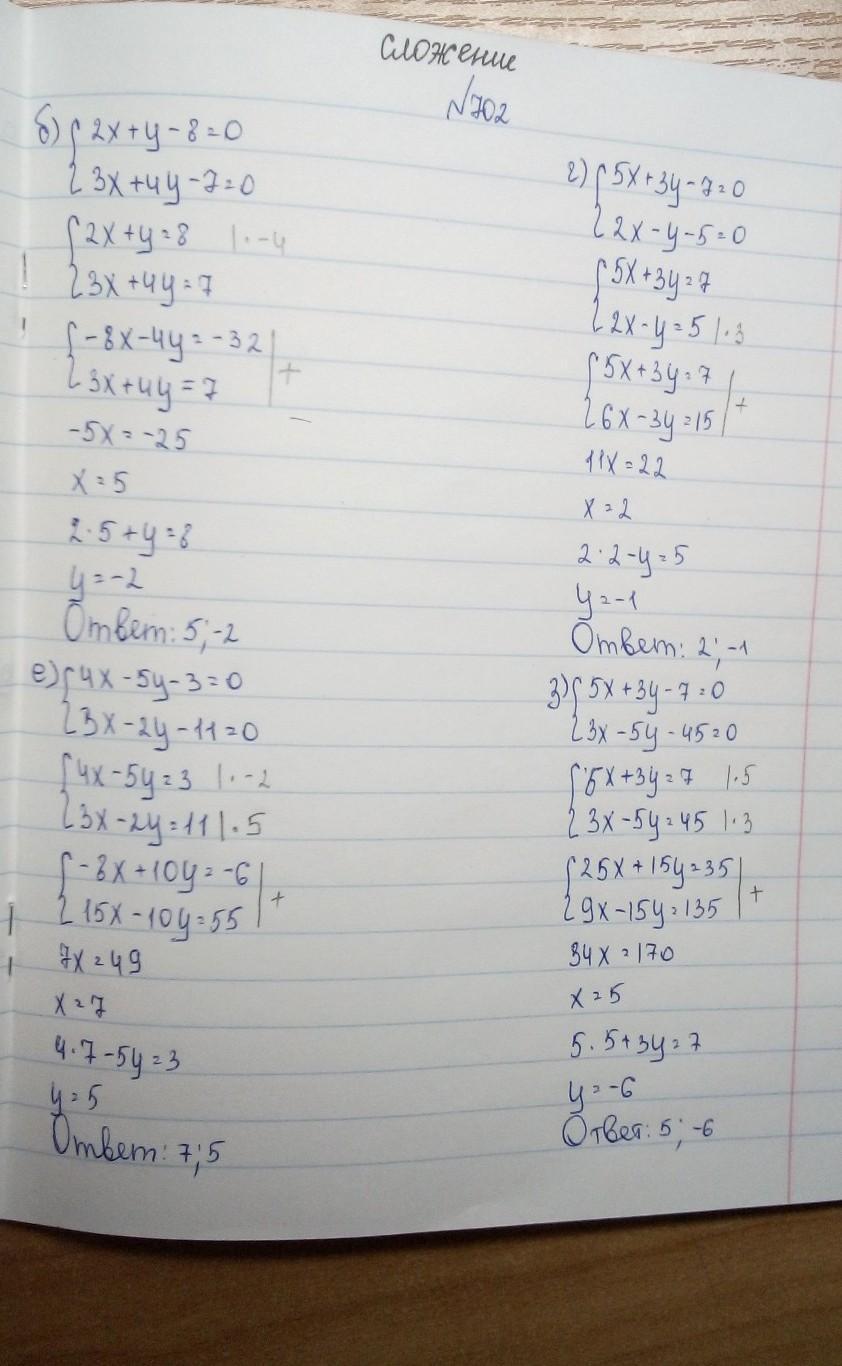 Сложение
№702
б) { 2x+y-8=0
3x+4y-7=0
{ 2x+y=8 |·-4
3x+4y=7
{ -8x-4y=-32
3x+4y=7 | +
-5x=-25
x=5
2·5+y=8
y=-2
Ответ: 5;-2
е) { 4x-5y-3=0
3x-2y-11=0
{ 4x-5y=3 |·-2
3x-2y=11 |·5
{ -8x+10y=-6
15x-10y=55 | +
7x=49
x=7
4·7-5y=3
y=5
Ответ: 7;5
г) { 5x+3y-7=0
2x-y-5=0
{ 5x+3y=7
2x-y=5 |·3
{ 5x+3y=7
6x-3y=15 | +
11x=22
x=2
2·2-y=5
y=-1
Ответ: 2;-1
з) { 5x+3y-7=0
3x-5y-45=0
{ 5x+3y=7 |·5
3x-5y=45 |·3
{ 25x+15y=35
9x-15y=135 | +
34x=170
x=5
5·5+3y=7
y=-6
Ответ: 5;-6